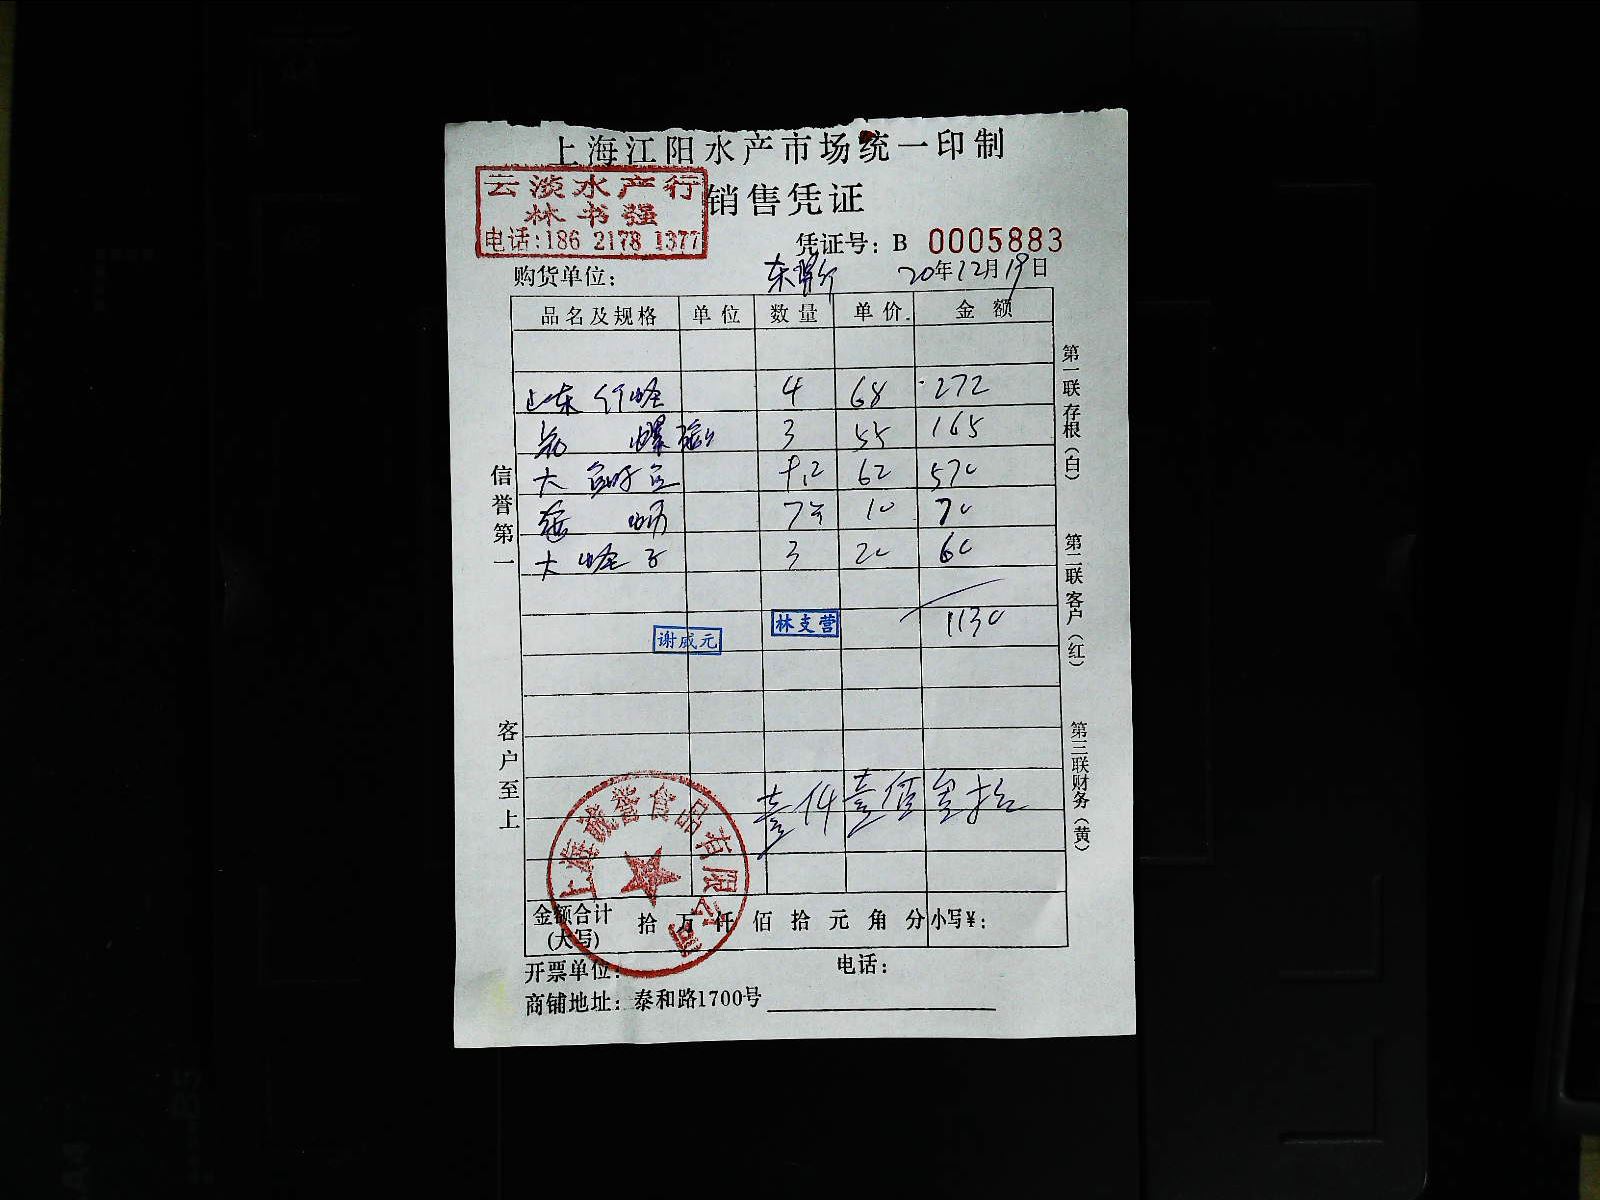 上海江阳水产市场统一印制
云淡水产行
林书强
电话:186 2178 1377
销售凭证
凭证号: B 0005883
购货单位:
20年12月19日
品名及规格 单位 数量 单价 金额
山东竹蛏 4 68 272
3 55 165
大 9.2 62 570
7 10 70
大蛏子 3 20 60
1130
谢成元
林支营
壹仟壹佰叁拾
上海诚誉食品有限公司
金额合计(大写) 拾 万 仟 佰 拾 元 角 分 小写¥:
开票单位: 电话:
商铺地址: 泰和路1700号
信誉第一
客户至上
第一联 存根(白)
第二联 客户(红)
第三联 财务(黄)